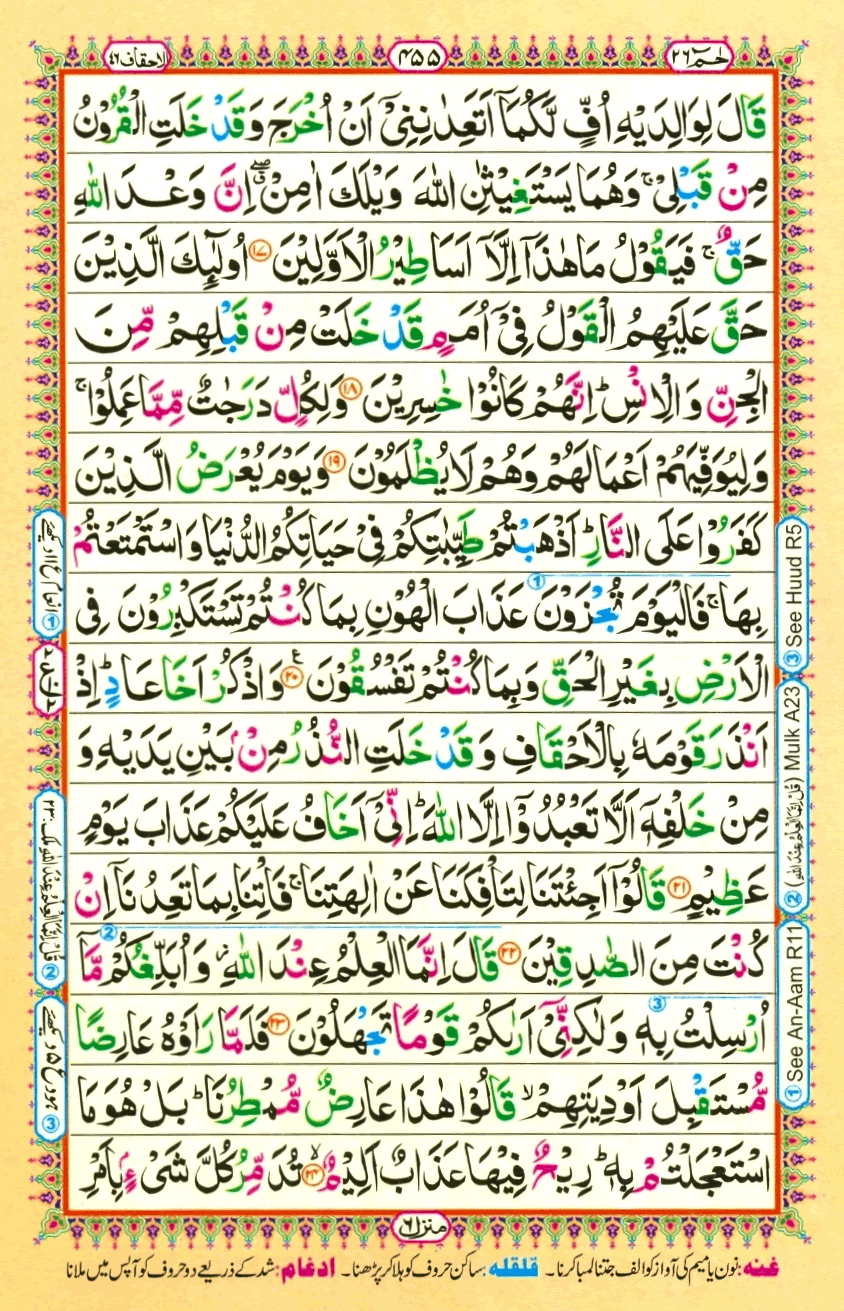 الاحقاف ٤٦
٤٥٥
حٰمٓ ٢٦
قَالَ لِوَالِدَيْهِ اُفٍّ لَّكُمَاۤ اَتَعِدٰنِنِيْۤ اَنْ اُخْرَجَ وَقَدْ خَلَتِ الْقُرُوْنُ
مِنْ قَبْلِيْ ۚ وَهُمَا يَسْتَغِيْثٰنِ اللّٰهَ وَيْلَكَ اٰمِنْ ۖۗ اِنَّ وَعْدَ اللّٰهِ
حَقٌّ ۚ فَيَقُوْلُ مَا هٰذَاۤ اِلَّاۤ اَسَاطِيْرُ الْاَوَّلِيْنَ ۝١٧ اُولٰٓئِكَ الَّذِيْنَ
حَقَّ عَلَيْهِمُ الْقَوْلُ فِيْۤ اُمَمٍ قَدْ خَلَتْ مِنْ قَبْلِهِمْ مِّنَ
الْجِنِّ وَالْاِنْسِ ؕ اِنَّهُمْ كَانُوْا خٰسِرِيْنَ ۝١٨ وَلِكُلٍّ دَرَجٰتٌ مِّمَّا عَمِلُوْا ۚ
وَلِيُوَفِّيَهُمْ اَعْمَالَهُمْ وَهُمْ لَا يُظْلَمُوْنَ ۝١٩ وَيَوْمَ يُعْرَضُ الَّذِيْنَ
كَفَرُوْا عَلَى النَّارِ ؕ اَذْهَبْتُمْ طَيِّبٰتِكُمْ فِيْ حَيَاتِكُمُ الدُّنْيَا وَاسْتَمْتَعْتُمْ
بِهَا ۚ فَالْيَوْمَ تُجْزَوْنَ عَذَابَ الْهُوْنِ بِمَا كُنْتُمْ تَسْتَكْبِرُوْنَ فِي
الْاَرْضِ بِغَيْرِ الْحَقِّ وَبِمَا كُنْتُمْ تَفْسُقُوْنَ ۝٢٠ وَاذْكُرْ اَخَا عَادٍ ؕ اِذْ
اَنْذَرَ قَوْمَهٗ بِالْاَحْقَافِ وَقَدْ خَلَتِ النُّذُرُ مِنْۢ بَيْنِ يَدَيْهِ وَ
مِنْ خَلْفِهٖۤ اَلَّا تَعْبُدُوْۤا اِلَّا اللّٰهَ ؕ اِنِّيْۤ اَخَافُ عَلَيْكُمْ عَذَابَ يَوْمٍ
عَظِيْمٍ ۝٢١ قَالُوْۤا اَجِئْتَنَا لِتَاْفِكَنَا عَنْ اٰلِهَتِنَا ۚ فَاْتِنَا بِمَا تَعِدُنَاۤ اِنْ
كُنْتَ مِنَ الصّٰدِقِيْنَ ۝٢٢ قَالَ اِنَّمَا الْعِلْمُ عِنْدَ اللّٰهِ ۖ وَاُبَلِّغُكُمْ مَّاۤ
اُرْسِلْتُ بِهٖ وَلٰكِنِّيْۤ اَرٰىكُمْ قَوْمًا تَجْهَلُوْنَ ۝٢٣ فَلَمَّا رَاَوْهُ عَارِضًا
مُّسْتَقْبِلَ اَوْدِيَتِهِمْ ۙ قَالُوْا هٰذَا عَارِضٌ مُّمْطِرُنَا ؕ بَلْ هُوَ مَا
اسْتَعْجَلْتُمْ بِهٖ ؕ رِيْحٌ فِيْهَا عَذَابٌ اَلِيْمٌ ۙ۝٢٤ تُدَمِّرُ كُلَّ شَيْءٍۭ بِاَمْرِ
③ See Huud R5
② (قُلْ اِنَّمَا الْعِلْمُ عِنْدَ اللّٰهِ) Mulk A23
① See An-Aam R11
① انعام ع ۱۱ دیکھیے
② قُلْ اِنَّمَا الْعِلْمُ عِنْدَ اللّٰهِ ملک ۲۳
③ ہود ع ۵ دیکھیے
منزل ٦
غنه: نون یا میم کی آواز کو الف جتنا لمبا کرنا۔ قلقله: ساکن حروف کو ہلا کر پڑھنا۔ ادغام: شد کے ذریعے دو حروف کو آپس میں ملانا